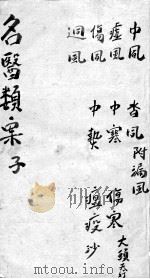 中風 風附漏風
虛風 中寒 傷寒 大頭天行
傷風 中熱 瘟疫 沙
風
名醫類案 子